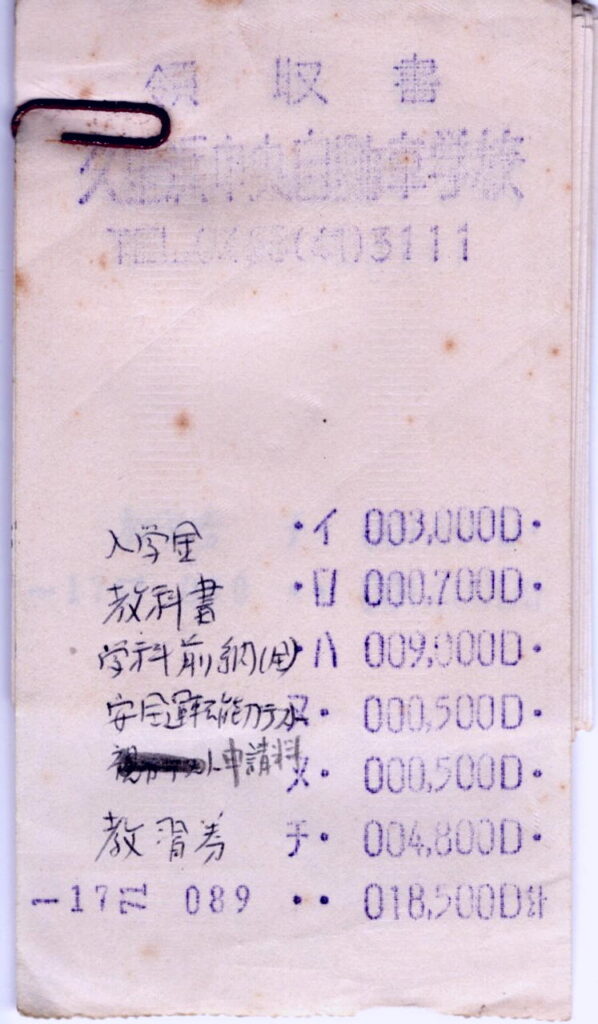 領収書
久里浜中央自動車学校
TEL 0468(41)3111
入学金 ・イ 003,000D・
教科書 ・ロ 000,700D・
学科前納 ・ハ 009,000D・
安全運転能力テスト ・ 000,500D・
申請料 ・ 000,500D・
教習券 チ・ 004,800D・
-17 71 089 ・・ 018,500D